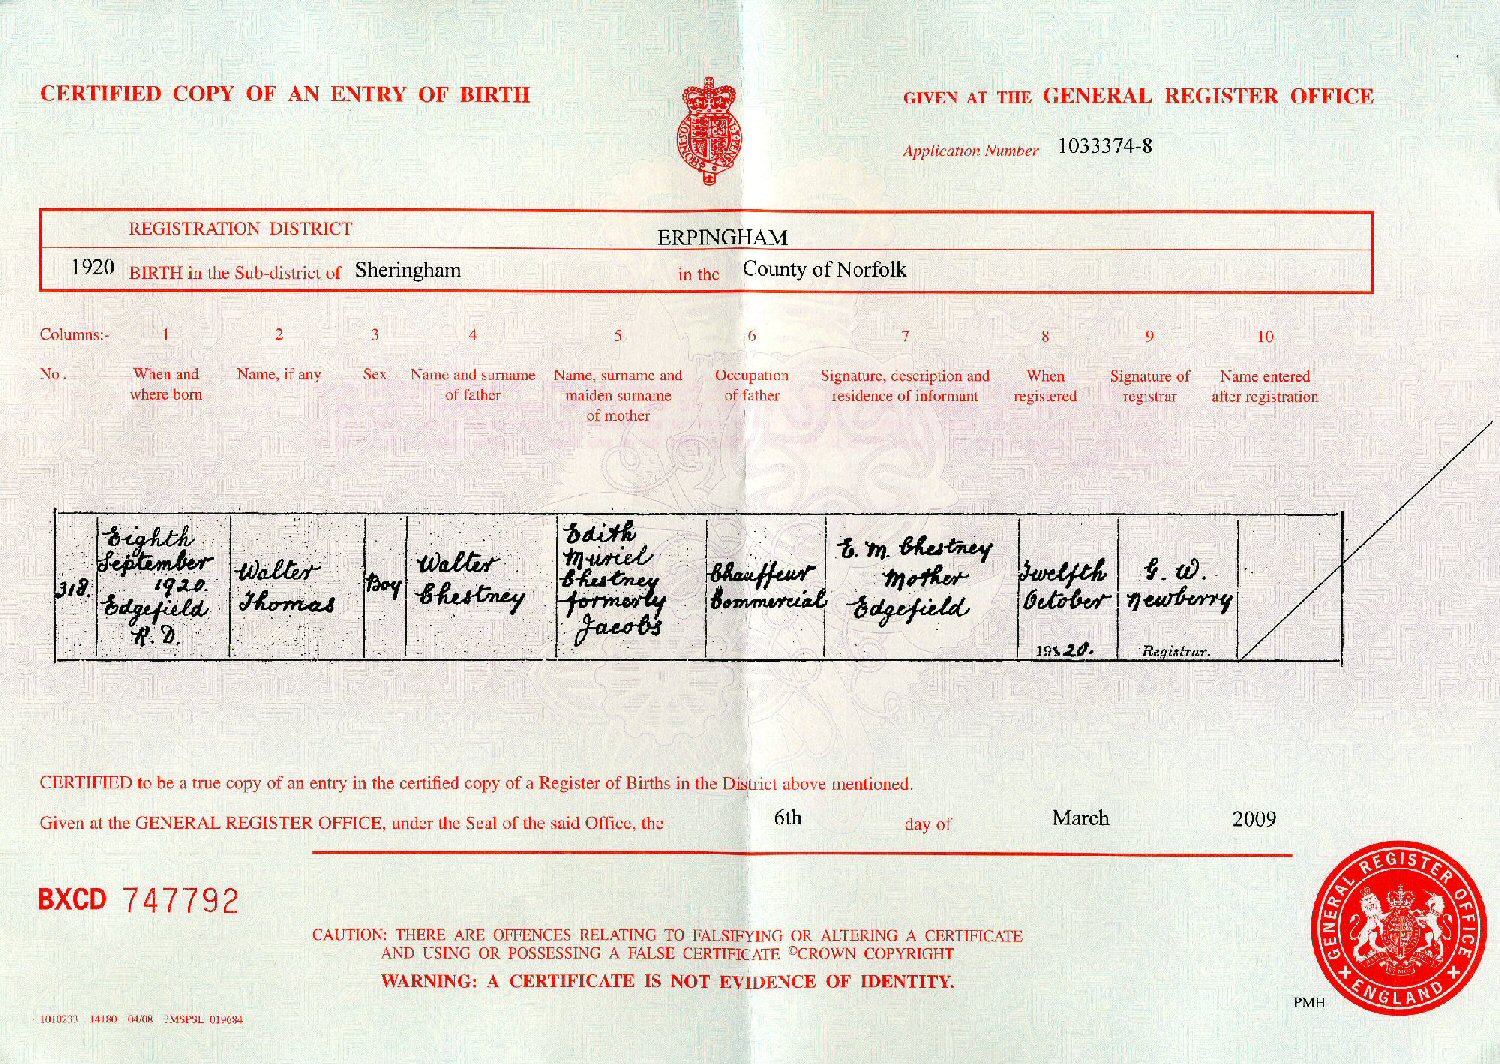 CERTIFIED COPY OF AN ENTRY OF BIRTH
GIVEN AT THE GENERAL REGISTER OFFICE
Application Number 1033374-8
REGISTRATION DISTRICT ERPINGHAM
1920 BIRTH in the Sub-district of Sheringham in the County of Norfolk
Columns:- 1 2 3 4 5 6 7 8 9 10
No. When and Name, if any Sex Name and surname Name, surname and Occupation Signature, description and When Signature of Name entered
where born of father maiden surname of father residence of informant registered registrar after registration
of mother
318.
Eighth
September
1920.
Edgefield
R. D.
Walter
Thomas
Boy
Walter
Chestney
Edith
Muriel
Chestney
formerly
Jacobs
Chauffeur
Commercial
E. M. Chestney
Mother
Edgefield
Twelfth
October
20.
G. W.
Newberry
Registrar.
CERTIFIED to be a true copy of an entry in the certified copy of a Register of Births in the District above mentioned.
Given at the GENERAL REGISTER OFFICE, under the Seal of the said Office, the 6th day of March 2009
BXCD 747792
CAUTION: THERE ARE OFFENCES RELATING TO FALSIFYING OR ALTERING A CERTIFICATE
AND USING OR POSSESSING A FALSE CERTIFICATE ©CROWN COPYRIGHT
WARNING: A CERTIFICATE IS NOT EVIDENCE OF IDENTITY.
GENERAL REGISTER OFFICE
ENGLAND
PMH
04/08